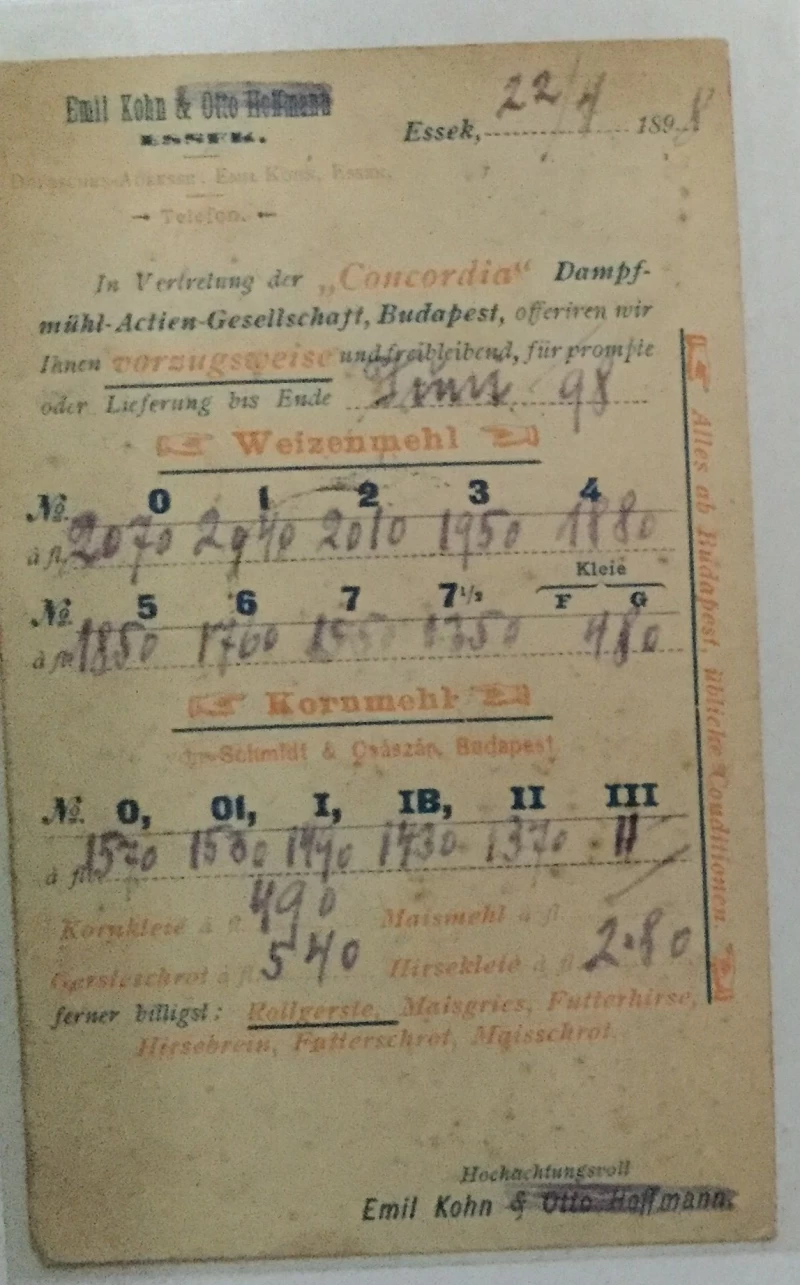 Emil Kohn & Otto Hoffmann
ESSEK.
Essek, 22/4 1898
Depeschen-Adresse: Emil Kohn, Essek.
Telefon.
In Vertretung der „Concordia“ Dampf-
mühl-Actien-Gesellschaft, Budapest, offeriren wir
Ihnen vorzugsweise und freibleibend, für prompte
oder Lieferung bis Ende Juni 98
Weizenmehl
No. 0 1 2 3 4
à fl. 2070 2040 2010 1950 1880
Kleie
No. 5 6 7 7 1/2 F G
à fl. 1850 1760 1350 480
Kornmehl
Schmidt & Császár, Budapest
No. 0, 01, I, IB, II III
à fl. 1570 1530 1490 1430 1370 11
Kornkleie à fl. 490 Maismehl à fl.
Gersteschrot à fl. 540 Hirsekleie à fl. 2.80
ferner billigst: Rollgerste, Maisgries, Futterhirse,
Hirsebrein, Futterschrot, Maisschrot.
Alles ab Budapest, übliche Conditionen.
Hochachtungsvoll
Emil Kohn & Otto Hoffmann.